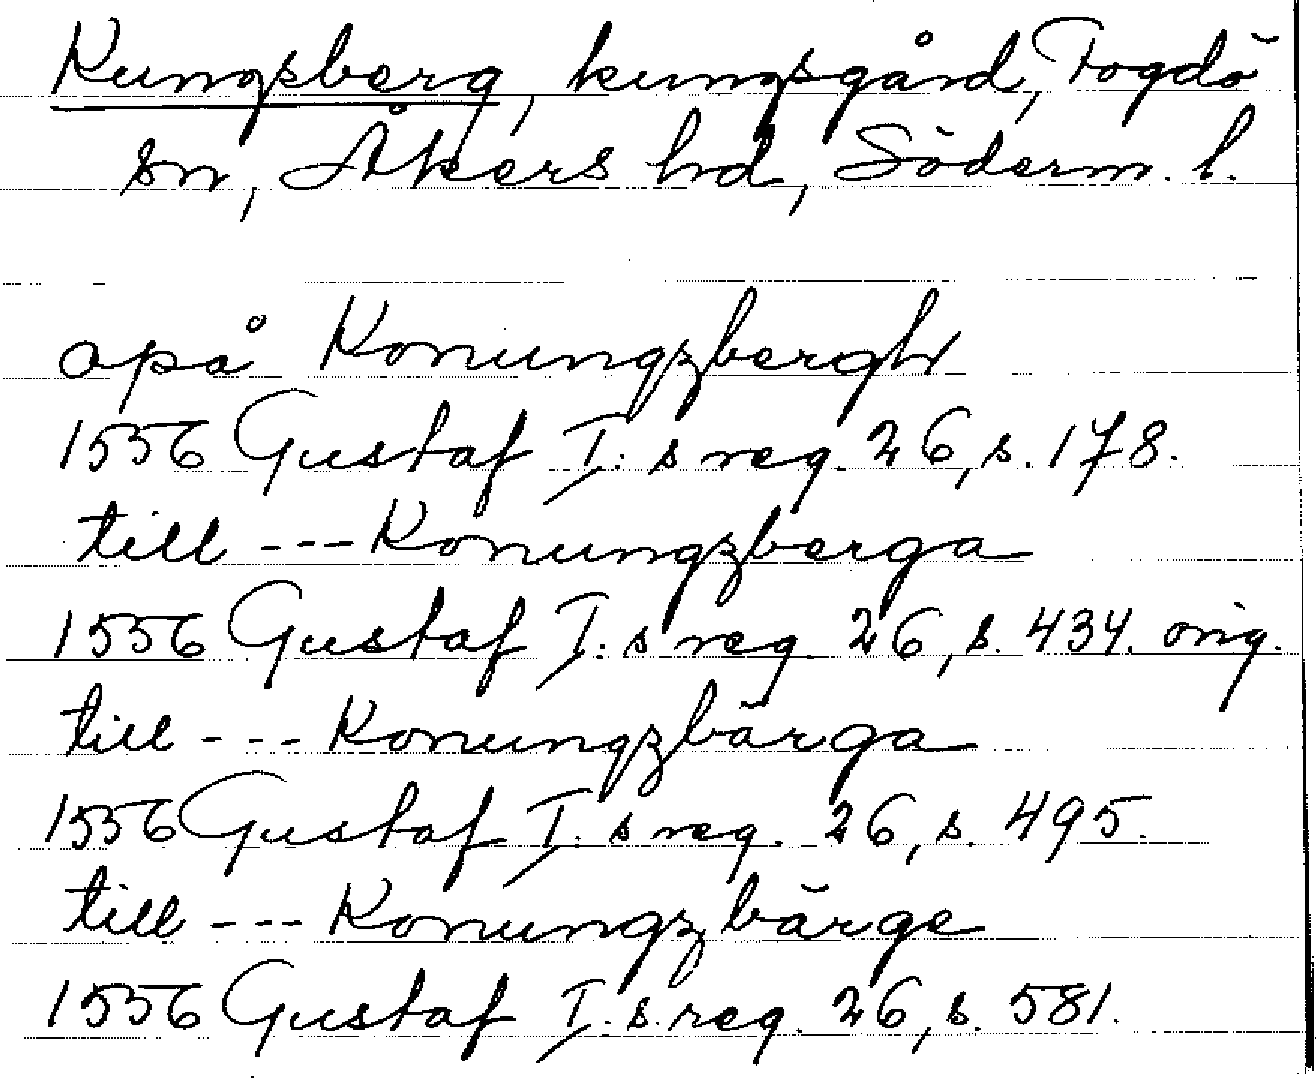 Kungsberg, kungsgård, Fogdö
sn, Åkers hd, Söderm. l.
apå Konungzbergh
1556 Gustaf I: s reg. 26, s. 178.
till --- Konungzberga
1556 Gustaf I: s reg. 26, s. 434. orig.
till --- Konungzbärga
1556 Gustaf I: s reg. 26, s. 495.
till --- Konungzbärge
1556 Gustaf I: s. reg. 26, s. 581.